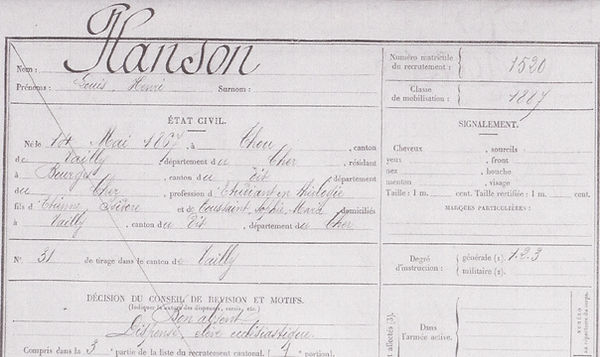 Nom: Hanson
Prénoms: Louis Henri Surnom:
Numéro matricule du recrutement : 1520
Classe de mobilisation : 1887
ÉTAT CIVIL.
Né le 14 Mai 1867, à Thou, canton
de Vailly, département du Cher, résidant
à Bourges, canton du dit, département
du Cher, profession d'Etudiant en théologie
fils d'Etienne et de Toussaint, Sophie Maria domiciliés
à Vailly, canton du dit, département du Cher
N° 31 de tirage dans le canton de Vailly
DÉCISION DU CONSEIL DE RÉVISION ET MOTIFS.
(Indiquer la nature des dispenses, sursis, etc.)
Bon absent
Dispensé élève ecclésiastique
Compris dans la 3 partie de la liste du recrutement cantonal. ( portion).
SIGNALEMENT.
Cheveux , sourcils
yeux , front
nez , bouche
menton , visage
Taille : 1 m. cent. Taille rectifiée : 1 m. cent.
MARQUES PARTICULIÈRES :
Degré d'instruction : générale (1). 1.2.3
militaire (2).
affectés (3).
Dans l'armée active.
NUMÉRO
au répertoire du corps.